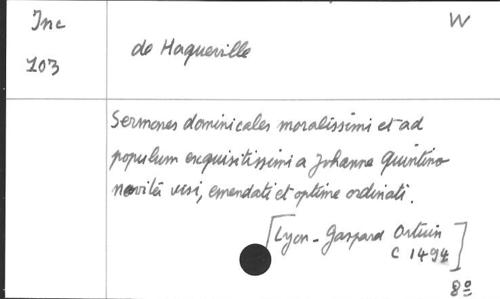 Inc W
103 de Haqueville
Sermones dominicales moralissimi et ad
populum exquisitissimi a Johanne Quintino
novitẽr visi, emendati et optime ordinati.
[Lyon - Gaspard Ortuin
C 1494]
8º